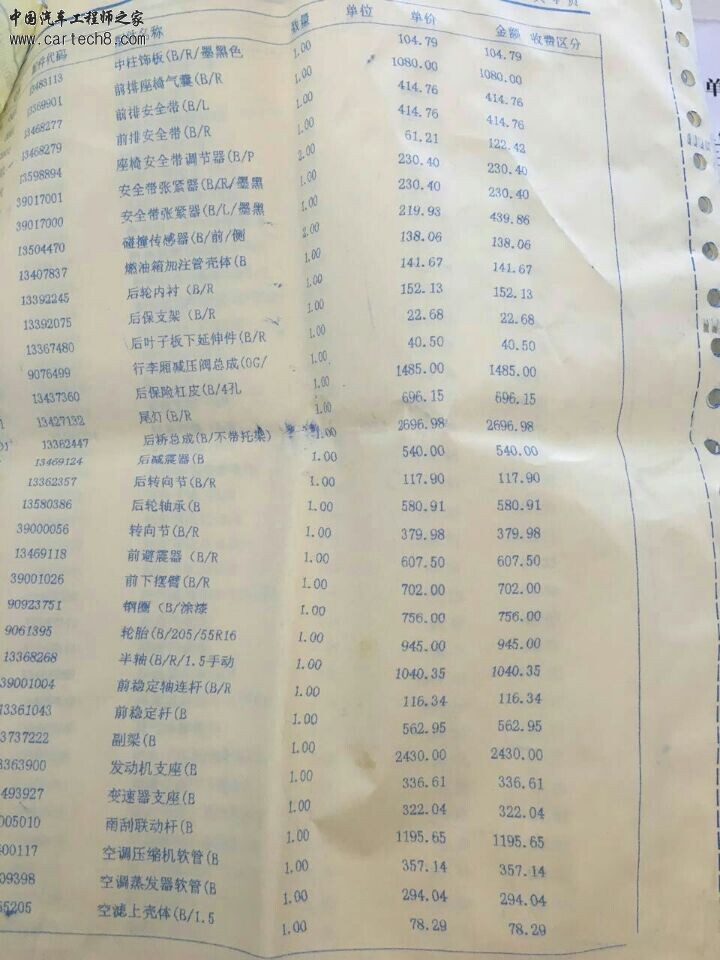 中国汽车工程师之家
www.cartech8.com
配件代码 配件名称 数量 单位 单价 金额 收费区分
13483113 中柱饰板(B/R/墨黑色 1.00 104.79 104.79
13369901 前排座椅气囊(B/R 1.00 1080.00 1080.00
13468277 前排安全带(B/L 1.00 414.76 414.76
13468279 前排安全带(B/R 1.00 414.76 414.76
13598894 座椅安全带调节器(B/P 2.00 61.21 122.42
39017001 安全带张紧器(B/R/墨黑 1.00 230.40 230.40
39017000 安全带张紧器(B/L/墨黑 1.00 230.40 230.40
13504470 碰撞传感器(B/前/侧 2.00 219.93 439.86
13407837 燃油箱加注管壳体(B 1.00 138.06 138.06
13392245 后轮内衬 (B/R 1.00 141.67 141.67
13392075 后保支架 (B/R 1.00 152.13 152.13
13367480 后叶子板下延伸件(B/R 1.00 22.68 22.68
9076499 行李厢减压阀总成(OG/ 1.00 40.50 40.50
13437360 后保险杠皮(B/4孔 1.00 1485.00 1485.00
13427132 尾灯(B/R 1.00 696.15 696.15
13362447 后桥总成(B/不带托架) 1.00 2696.98 2696.98
13469124 后减震器(B 1.00 540.00 540.00
13362357 后转向节(B/R 1.00 117.90 117.90
13580386 后轮轴承(B 1.00 580.91 580.91
39000056 转向节(B/R 1.00 379.98 379.98
13469118 前避震器 (B/R 1.00 607.50 607.50
39001026 前下摆臂(B/R 1.00 702.00 702.00
90923751 钢圈 (B/涂漆 1.00 756.00 756.00
9061395 轮胎(B/205/55R16 1.00 945.00 945.00
13368268 半轴(B/R/1.5手动 1.00 1040.35 1040.35
39001004 前稳定轴连杆(B/R 1.00 116.34 116.34
3361043 前稳定杆(B 1.00 562.95 562.95
3737222 副梁(B 1.00 2430.00 2430.00
3363900 发动机支座(B 1.00 336.61 336.61
493927 变速器支座(B 1.00 322.04 322.04
005010 雨刮联动杆(B 1.00 1195.65 1195.65
00117 空调压缩机软管(B 1.00 357.14 357.14
09398 空调蒸发器软管(B 1.00 294.04 294.04
5205 空滤上壳体(B/1.5 1.00 78.29 78.29